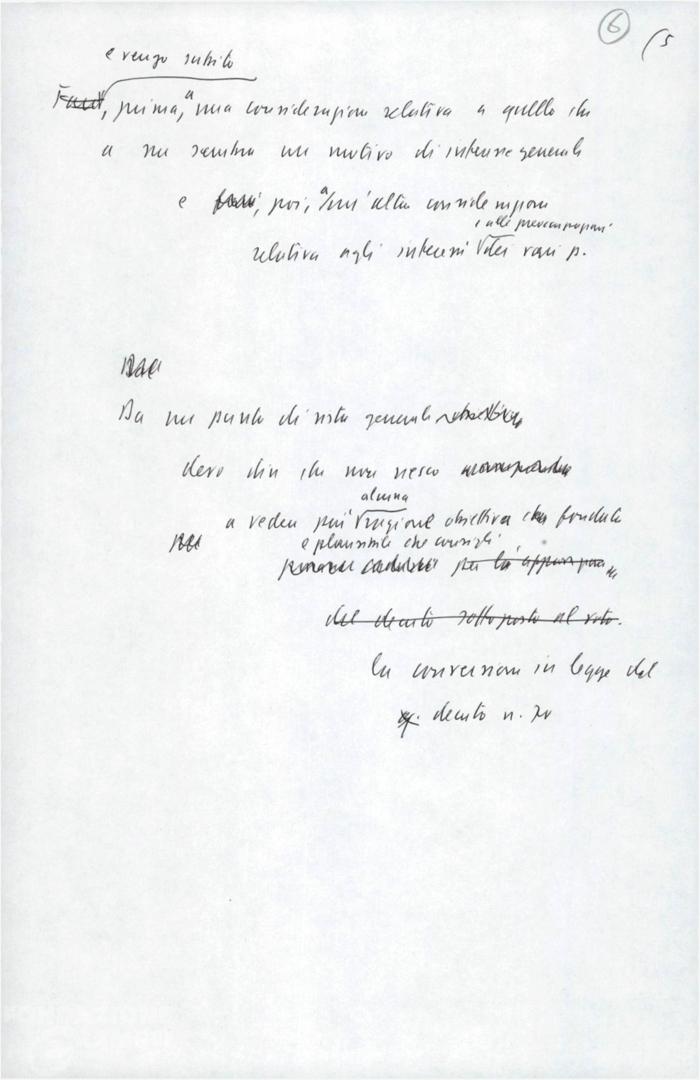 6
5
e vengo subito
prima, a una considerazione relativa a quello che
a me sembra un motivo di interesse generale
e poi, a un'altra considerazione
e alle preoccupazioni
relativa agli interessi dei vari p.
Da un punto di vista generale
devo dire che non riesco
alcuna
a vedere più ragione obiettiva che fondata
e plausibile che consigli
per la approvazione
del decreto sottoposto al voto.
la conversione in legge del
decreto n. 70